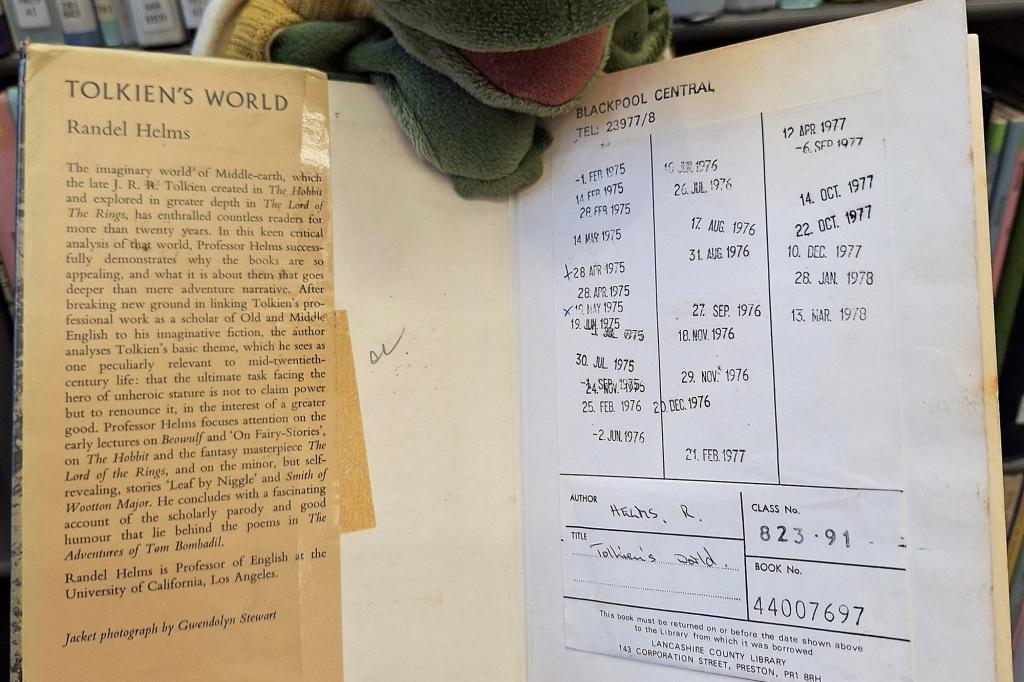 TOLKIEN'S WORLD
Randel Helms
The imaginary world of Middle-earth, which
the late J. R. R. Tolkien created in The Hobbit
and explored in greater depth in The Lord of
The Rings, has enthralled countless readers for
more than twenty years. In this keen critical
analysis of that world, Professor Helms success-
fully demonstrates why the books are so
appealing, and what it is about them that goes
deeper than mere adventure narrative. After
breaking new ground in linking Tolkien's pro-
fessional work as a scholar of Old and Middle
English to his imaginative fiction, the author
analyses Tolkien's basic theme, which he sees as
one peculiarly relevant to mid-twentieth-
century life: that the ultimate task facing the
hero of unheroic stature is not to claim power
but to renounce it, in the interest of a greater
good. Professor Helms focuses attention on the
early lectures on Beowulf and 'On Fairy-Stories',
on The Hobbit and the fantasy masterpiece The
Lord of the Rings, and on the minor, but self-
revealing, stories 'Leaf by Niggle' and Smith of
Wootton Major. He concludes with a fascinating
account of the scholarly parody and good
humour that lie behind the poems in The
Adventures of Tom Bombadil.
Randel Helms is Professor of English at the
University of California, Los Angeles.
Jacket photograph by Gwendolyn Stewart
BLACKPOOL CENTRAL
TEL: 23977/8
-1. FEB 1975
14 FEB 1975
28 FEB 1975
14 MAR 1975
28 APR 1975
28. APR. 1975
19. MAY 1975
19. JUN. 1975
JUL 1975
30. JUL 1975
SEP. 1975
24. NOV. 1975
25. FEB. 1976
-2. JUN. 1976
10 JUN. 1976
26. JUL. 1976
17. AUG 1976
31. AUG 1976
27. SEP 1976
18. NOV. 1976
29. NOV. 1976
20 DEC. 1976
21. FEB. 1977
12 APR 1977
-6. SEP 1977
14. OCT. 1977
22. OCT. 1977
10. DEC. 1977
28. JAN. 1978
13. MAR. 1978
AUTHOR
HELMS, R.
TITLE
Tolkien's world.
CLASS No.
823.91
BOOK No.
44007697
This book must be returned on or before the date shown above
to the Library from which it was borrowed
LANCASHIRE COUNTY LIBRARY
143 CORPORATION STREET, PRESTON, PR1 8RH